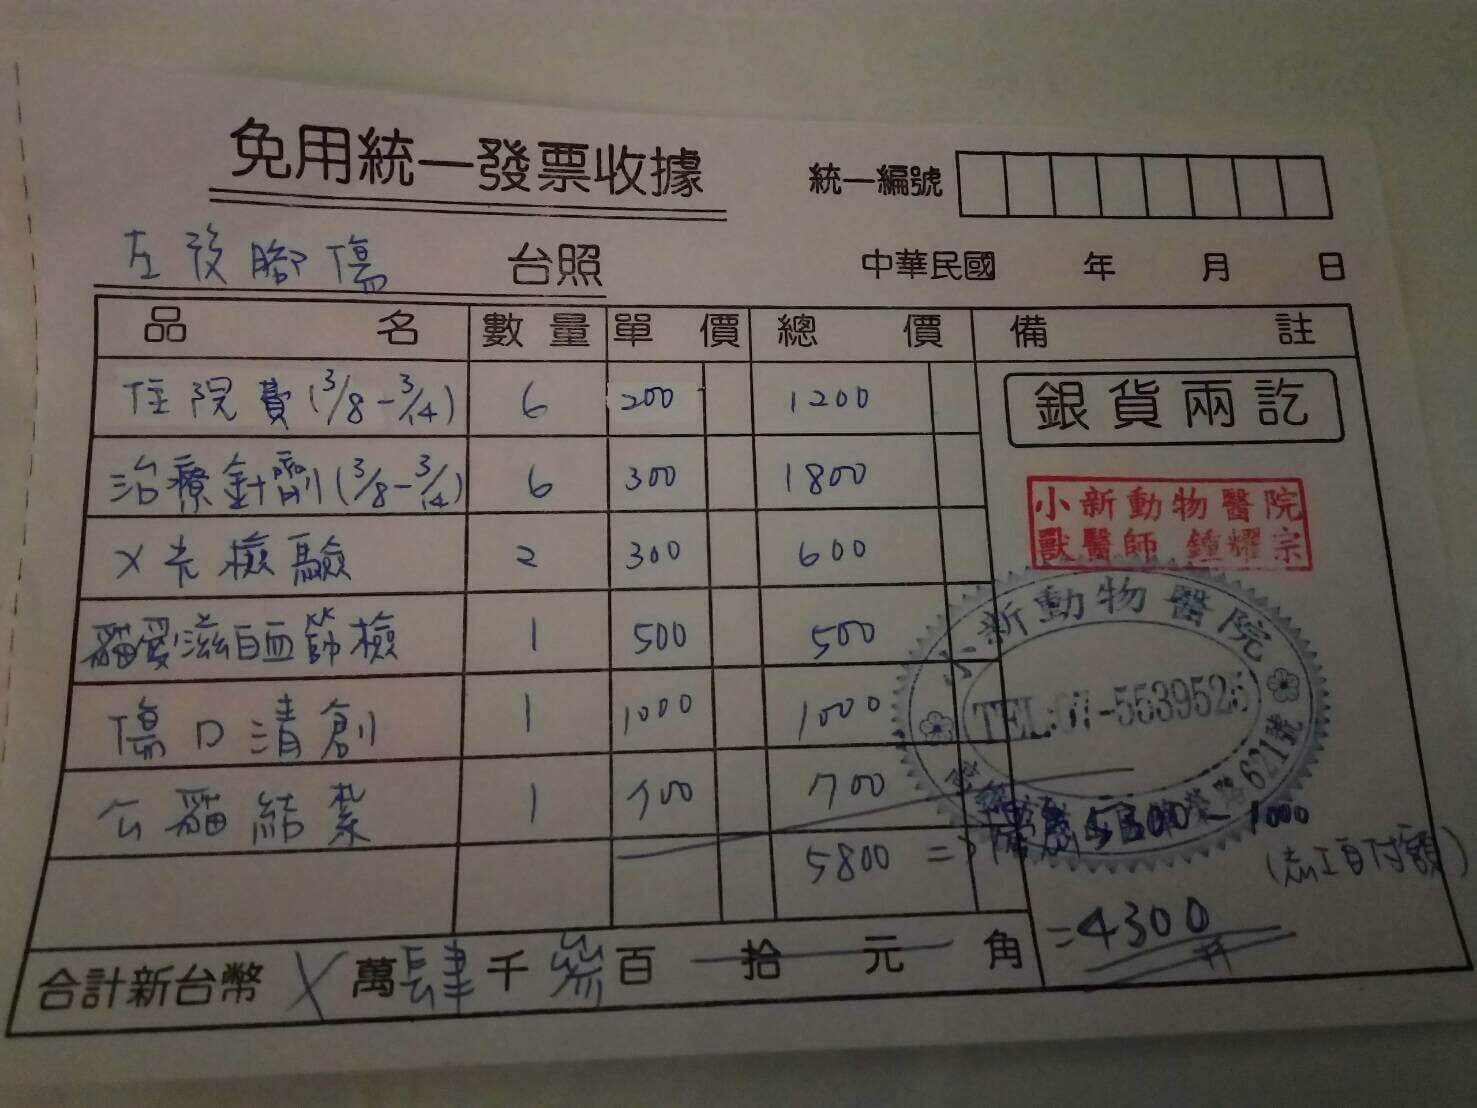 免用統一發票收據
統一編號
左後腳傷 台照
中華民國 年 月 日
品名 數量 單價 總價 備註
住院費(3/8-3/14) 6 200 1200
銀貨兩訖
治療針劑(3/8-3/14) 6 300 1800
小新動物醫院
獸醫師 鍾耀宗
X光檢驗 2 300 600
貓愛滋白血篩檢 1 500 500
小新動物醫院
TEL:07-5539525
621號
傷口清創 1 1000 1000
公貓結紮 1 700 700
5800 => 優惠5300-1000
(志工自付額)
=4300
合計新台幣 X萬肆千參百拾元角